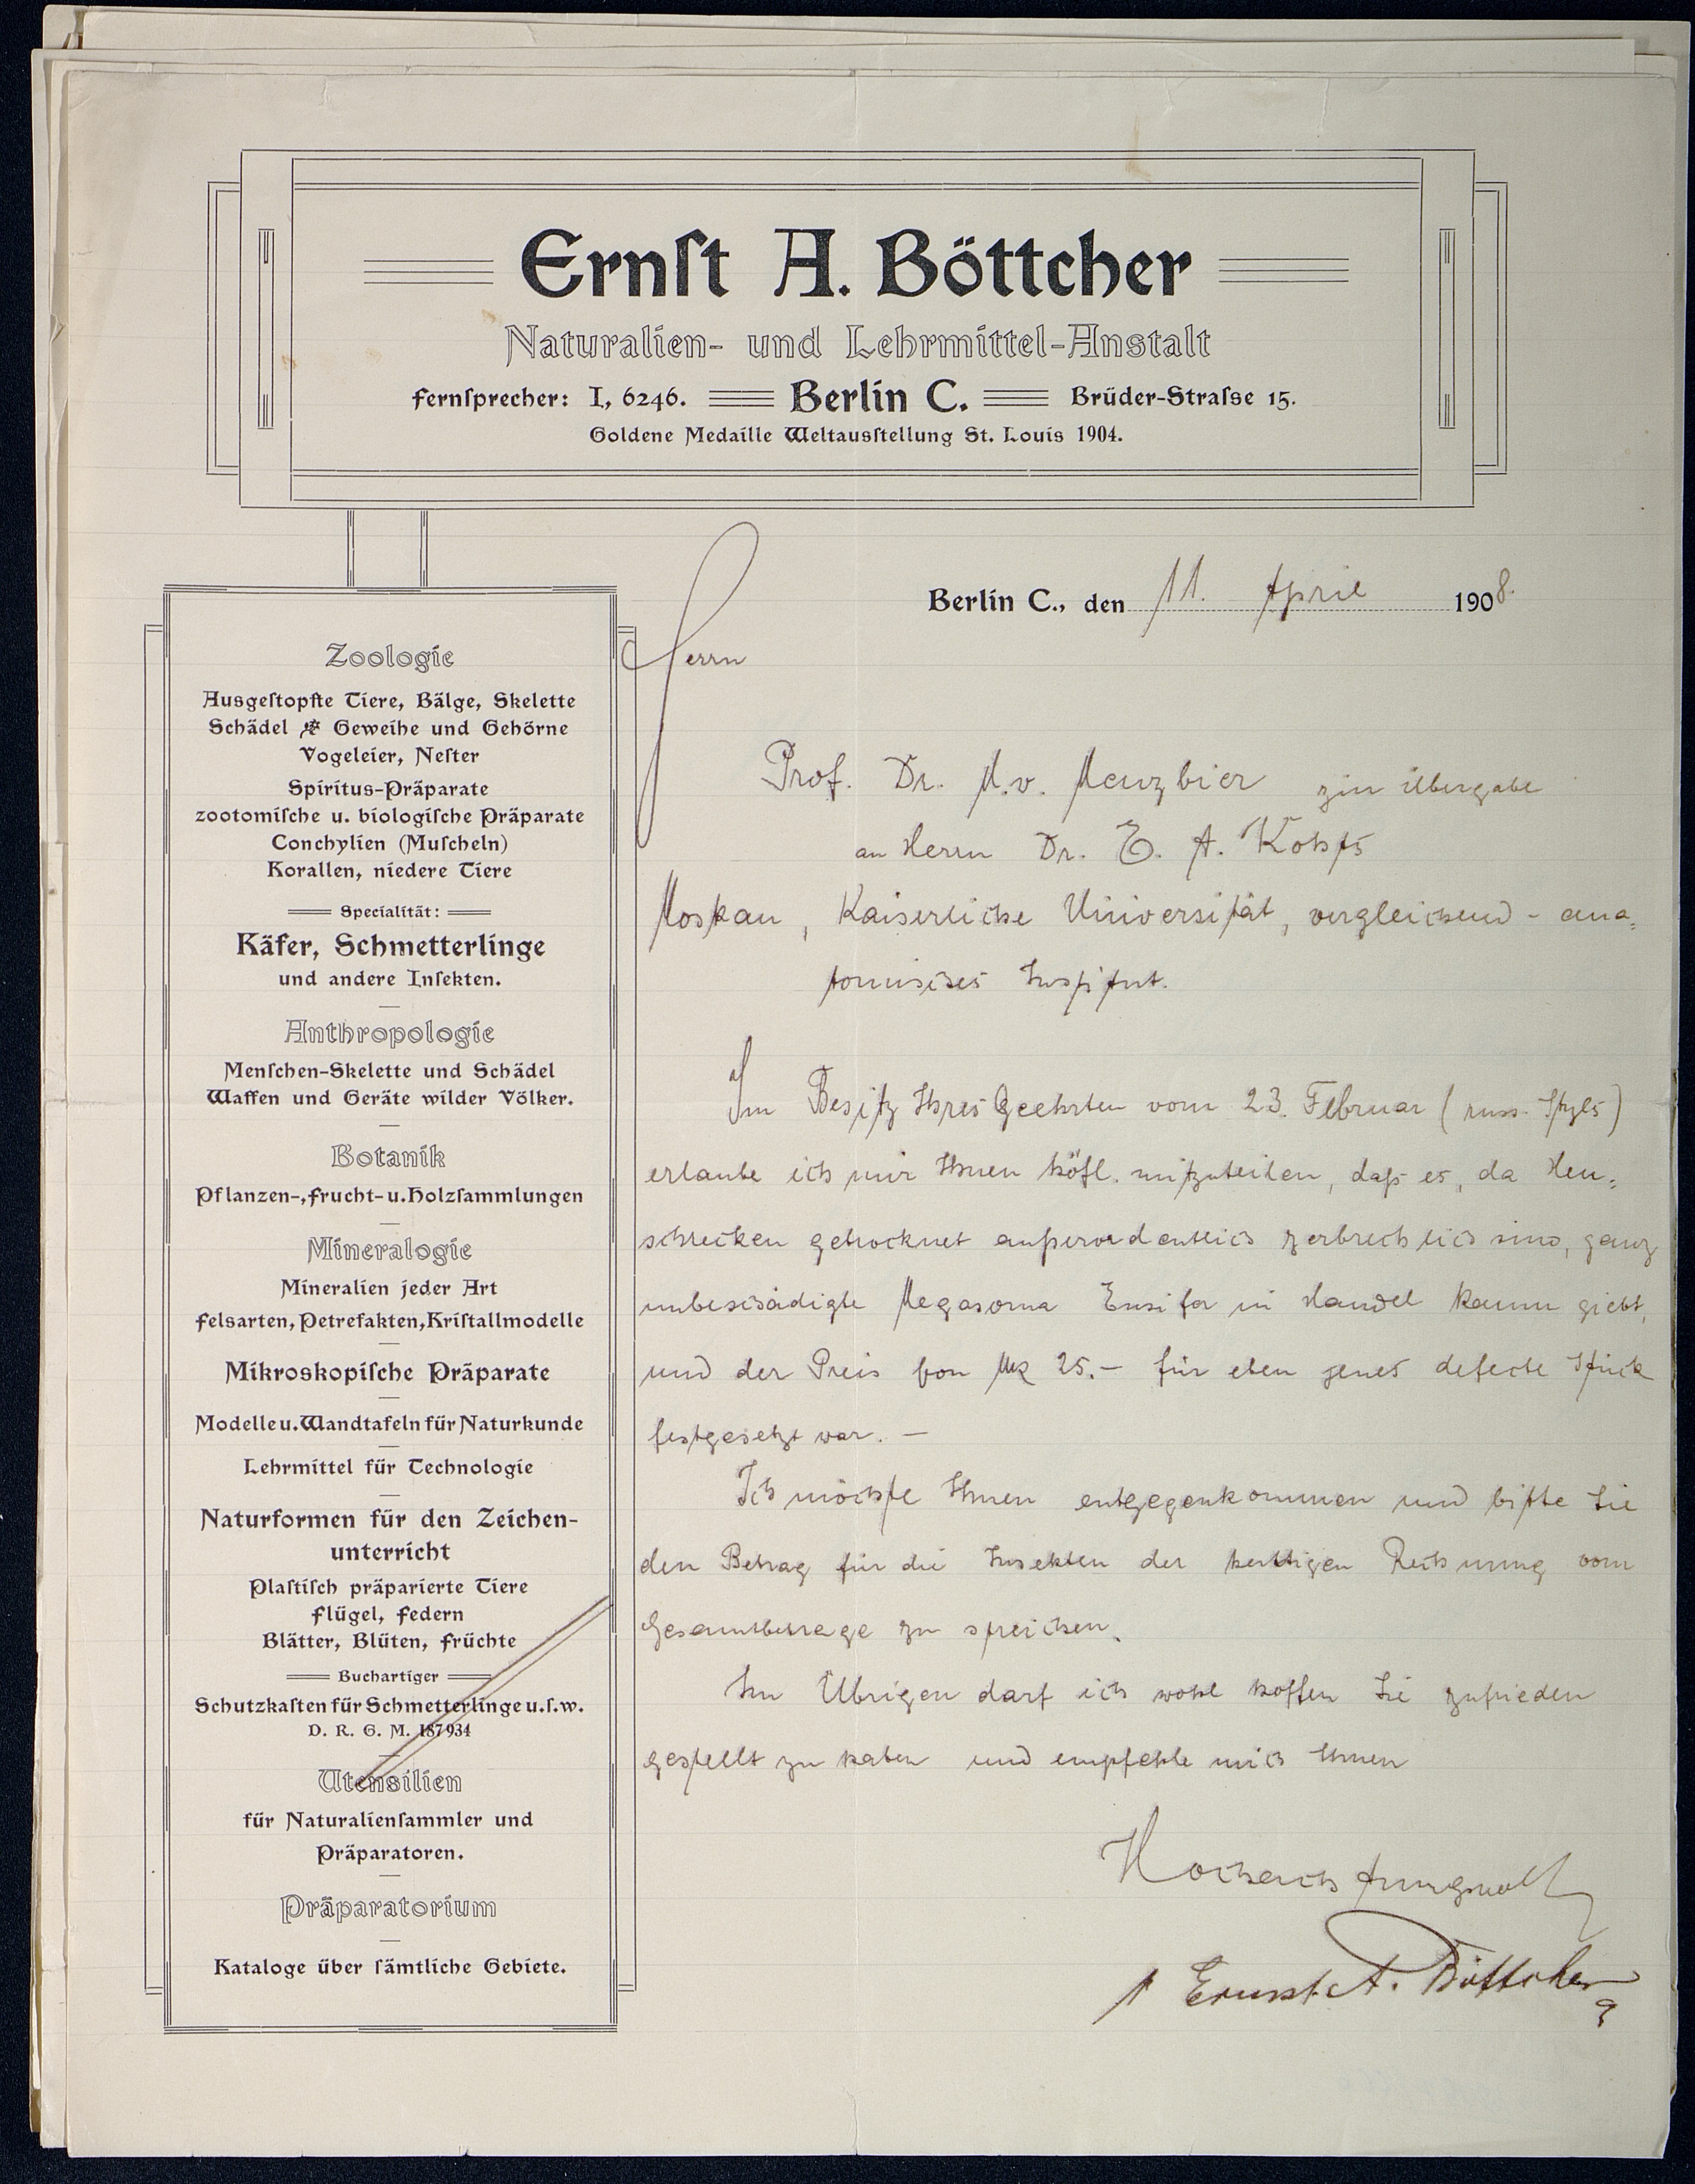 Ernſt A. Böttcher
Naturalien- und Lehrmittel-Anstalt
Fernſprecher: I, 6246. Berlin C. Brüder-Straſse 15.
Goldene Medaille Weltausſtellung St. Louis 1904.
Berlin C., den 11. April 1908.
Zoologie
Ausgeſtopfte Tiere, Bälge, Skelette
Schädel Geweihe und Gehörne
Vogeleier, Neſter
Spiritus-Präparate
zootomiſche u. biologiſche Präparate
Conchylien (Muſcheln)
Korallen, niedere Tiere
Specialität:
Käfer, Schmetterlinge
und andere Inſekten.
Anthropologie
Menſchen-Skelette und Schädel
Waffen und Geräte wilder Völker.
Botanik
Pflanzen-, Frucht- u. Holzſammlungen
Mineralogie
Mineralien jeder Art
Felsarten, Petrefakten, Kriſtallmodelle
Mikroskopiſche Präparate
Modelle u. Wandtafeln für Naturkunde
Lehrmittel für Technologie
Naturformen für den Zeichen-
unterricht
Plaſtiſch präparierte Tiere
Flügel, Federn
Blätter, Blüten, Früchte
Buchartiger
Schutzkaſten für Schmetterlinge u. ſ. w.
D. R. G. M. 187934
Utensilien
für Naturalienſammler und
Präparatoren.
Präparatorium
Kataloge über ſämtliche Gebiete.
Herrn
Prof. Dr. M. v. Menzbier zur Übergabe
an Herrn Dr. E. A.
Moskau, Kaiserliche Universität, vergleichend - ana-
tomisches Institut.
Im Besitz Ihres Geehrten vom 23. Februar (russ. Styls)
erlaube ich mir Ihnen höfl. mitzuteilen, daß es, da Heu-
schrecken getrocknet außerordentlich zerbrechlich sind, ganz
unbeschädigte Megasoma Ensifer in Handel kaum giebt,
und der Preis von Mk 25.- für eben jenes defecte Stück
festgesetzt war. -
Ich möchte Ihnen entgegenkommen und bitte Sie
den Betrag für die Insekten der Rechnung vom
Gesamtbetrage zu streichen.
Im Übrigen darf ich wohl hoffen Sie zufrieden
gestellt zu haben und empfehle mich Ihnen
Hochachtungsvoll
Ernst A. Böttcher